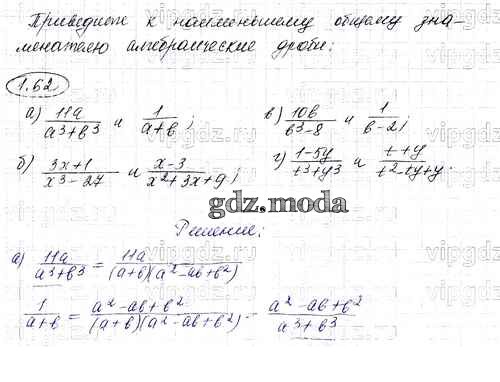 Приведите к наименьшему общему зна-
менателю алгебраические дроби:
1.62
а) 11a/(a³+b³) и 1/(a+b); в) 10b/(b³-8) и 1/(b-2);
б) (3x+1)/(x³-27) и (x-3)/(x²+3x+9); г) (1-5y)/(t³+y³) и (t+y)/(t²-ty+y.
gdz.moda
Решение:
а) 11a/(a³+b³) = 11a/((a+b)(a²-ab+b²))
1/(a+b) = (a²-ab+b²)/((a+b)(a²-ab+b²)) - (a²-ab+b²)/(a³+b³)